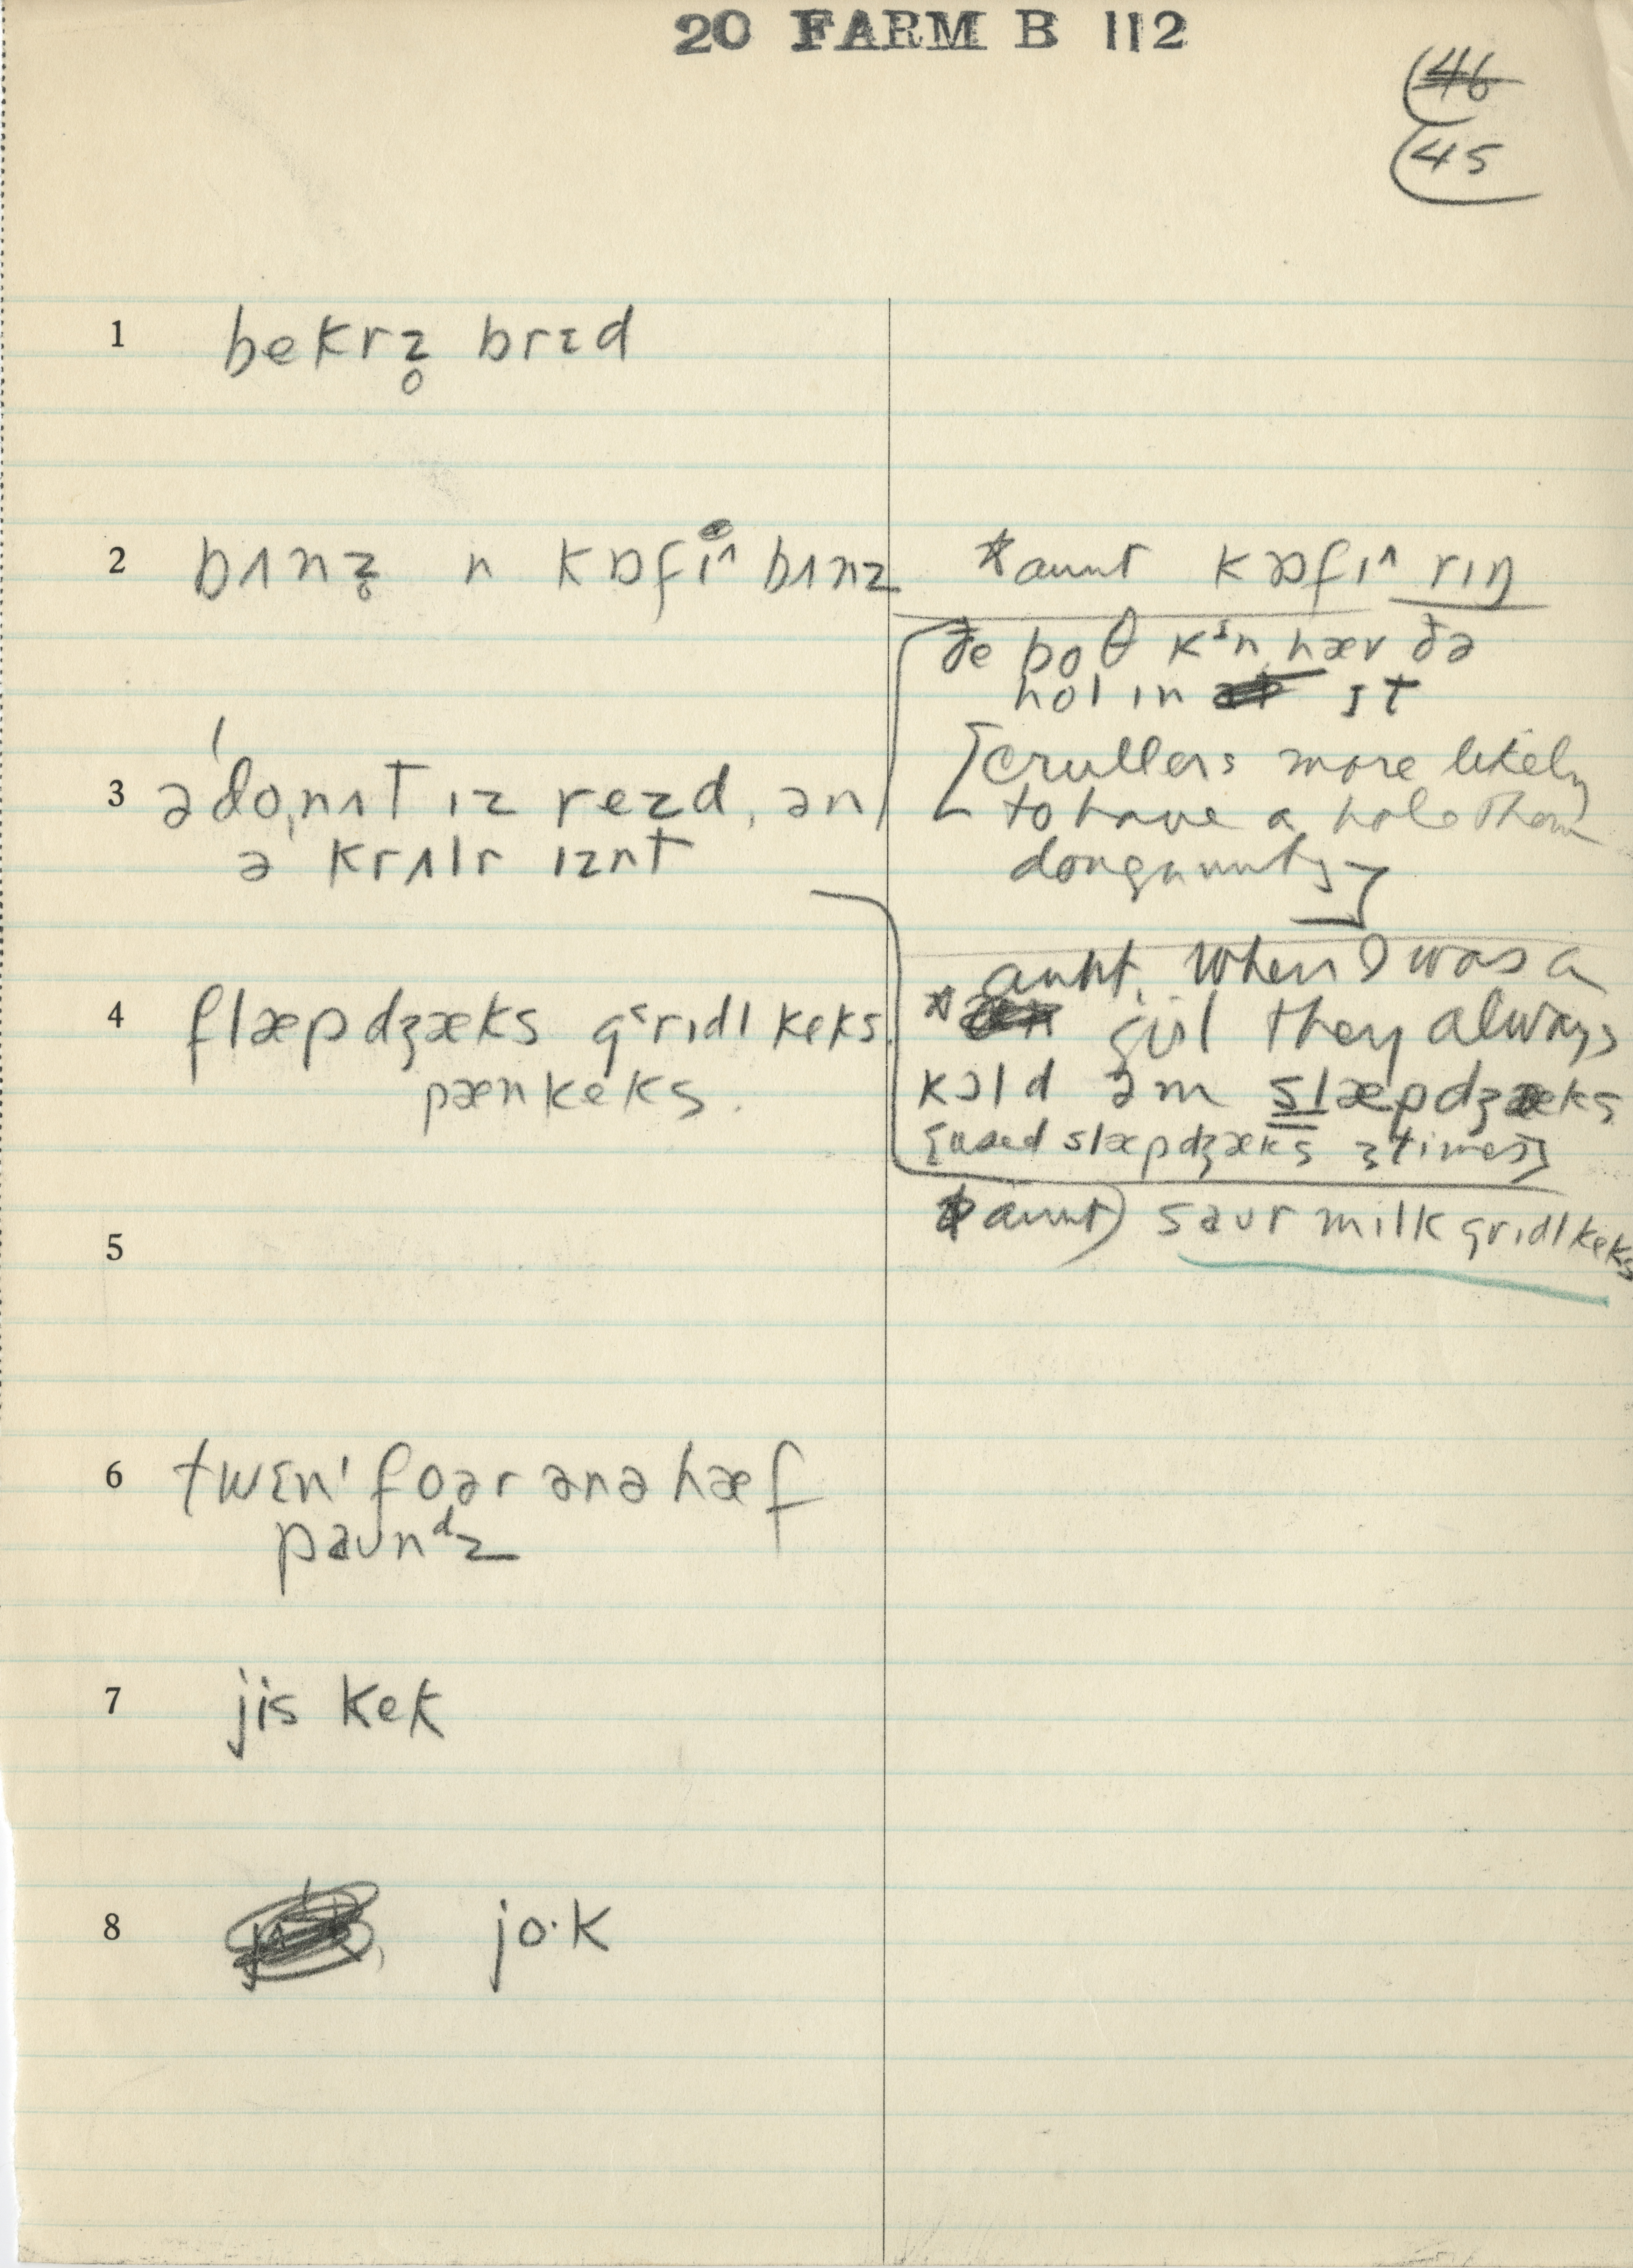 20 FARM B 112
45
1 bekrz̥ brɛd
2 bʌnz̥ n kɒfi^ bʌnz
*aunt kɒfɪ^ rɪŋ
ðe boθ kɪn hæv ðə
hol in ɪt
3 ə'do,nʌt ɪz rezd, ən
ə krʌlr ɪznt
[crullers more likely
to have a hole than
doughnuts]
4 flæpdʒæks gəridl keks.
pænkeks.
*aunt. When I was a
girl they always
kɔld əm slæpdʒæks
[used slæpdʒæks 3 times]
5
aunt) saʊr milk gridlkeks
6 twɛn' foər ənə hæf
paʊnᵈz
7 jis kek
8 jo·k